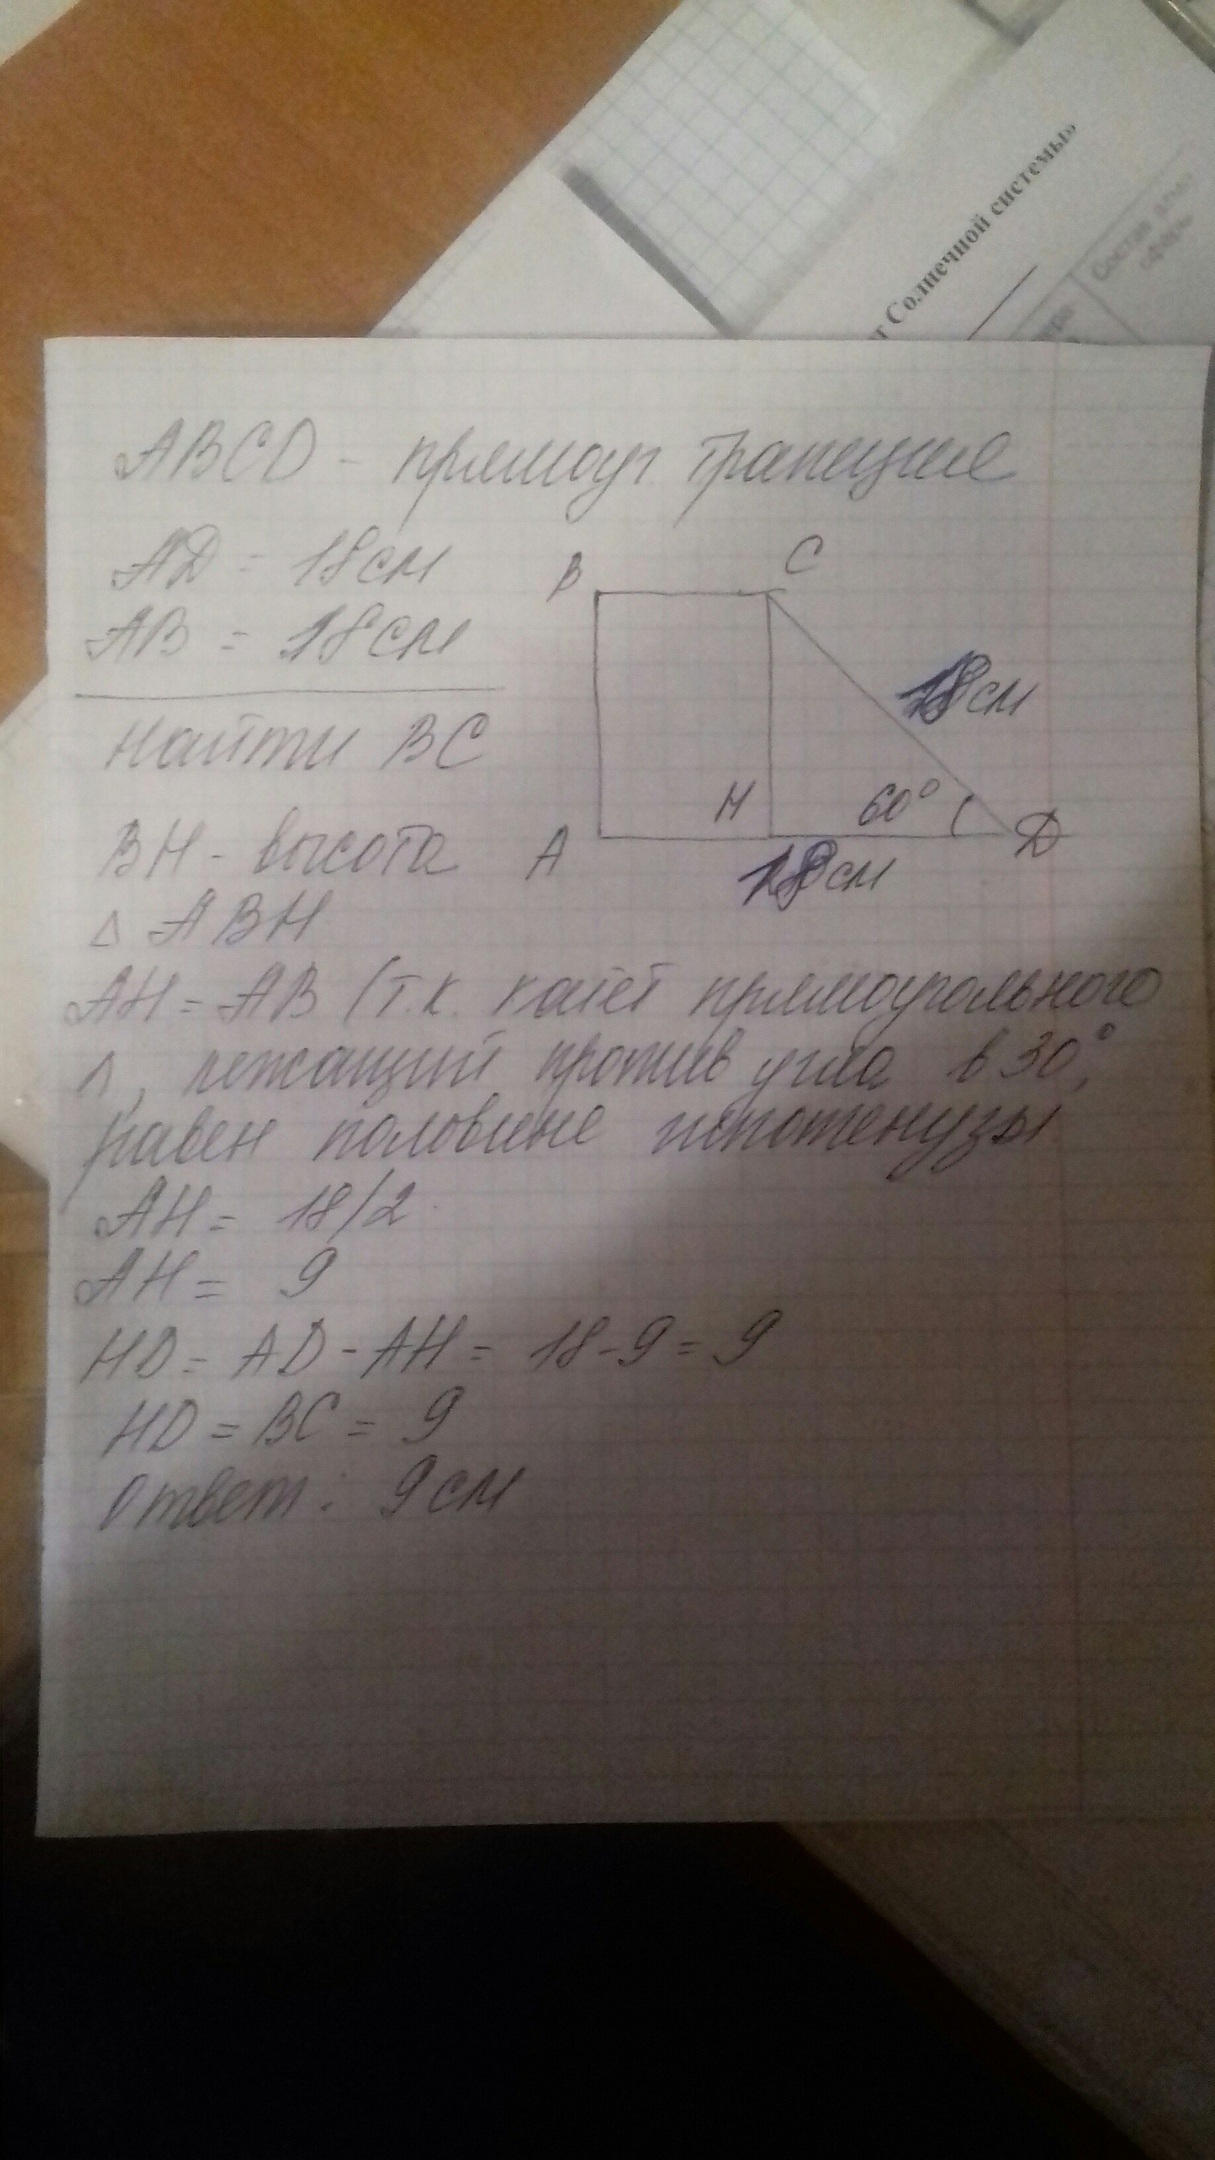 т Солнечной системы»
Состав атмо
сферы
ABCD - прямоуг. трапеция
AD = 18 см
AB = 18 см
Найти BC
B
C
18 см
H
60°
A
D
18 см
BH - высота
△ ABH
AH = AB (т.к. катет прямоугольного
△, лежащий против угла в 30°,
равен половине гипотенузы
AH = 18/2
AH = 9
HD = AD - AH = 18-9 = 9
HD = BC = 9
Ответ: 9 см